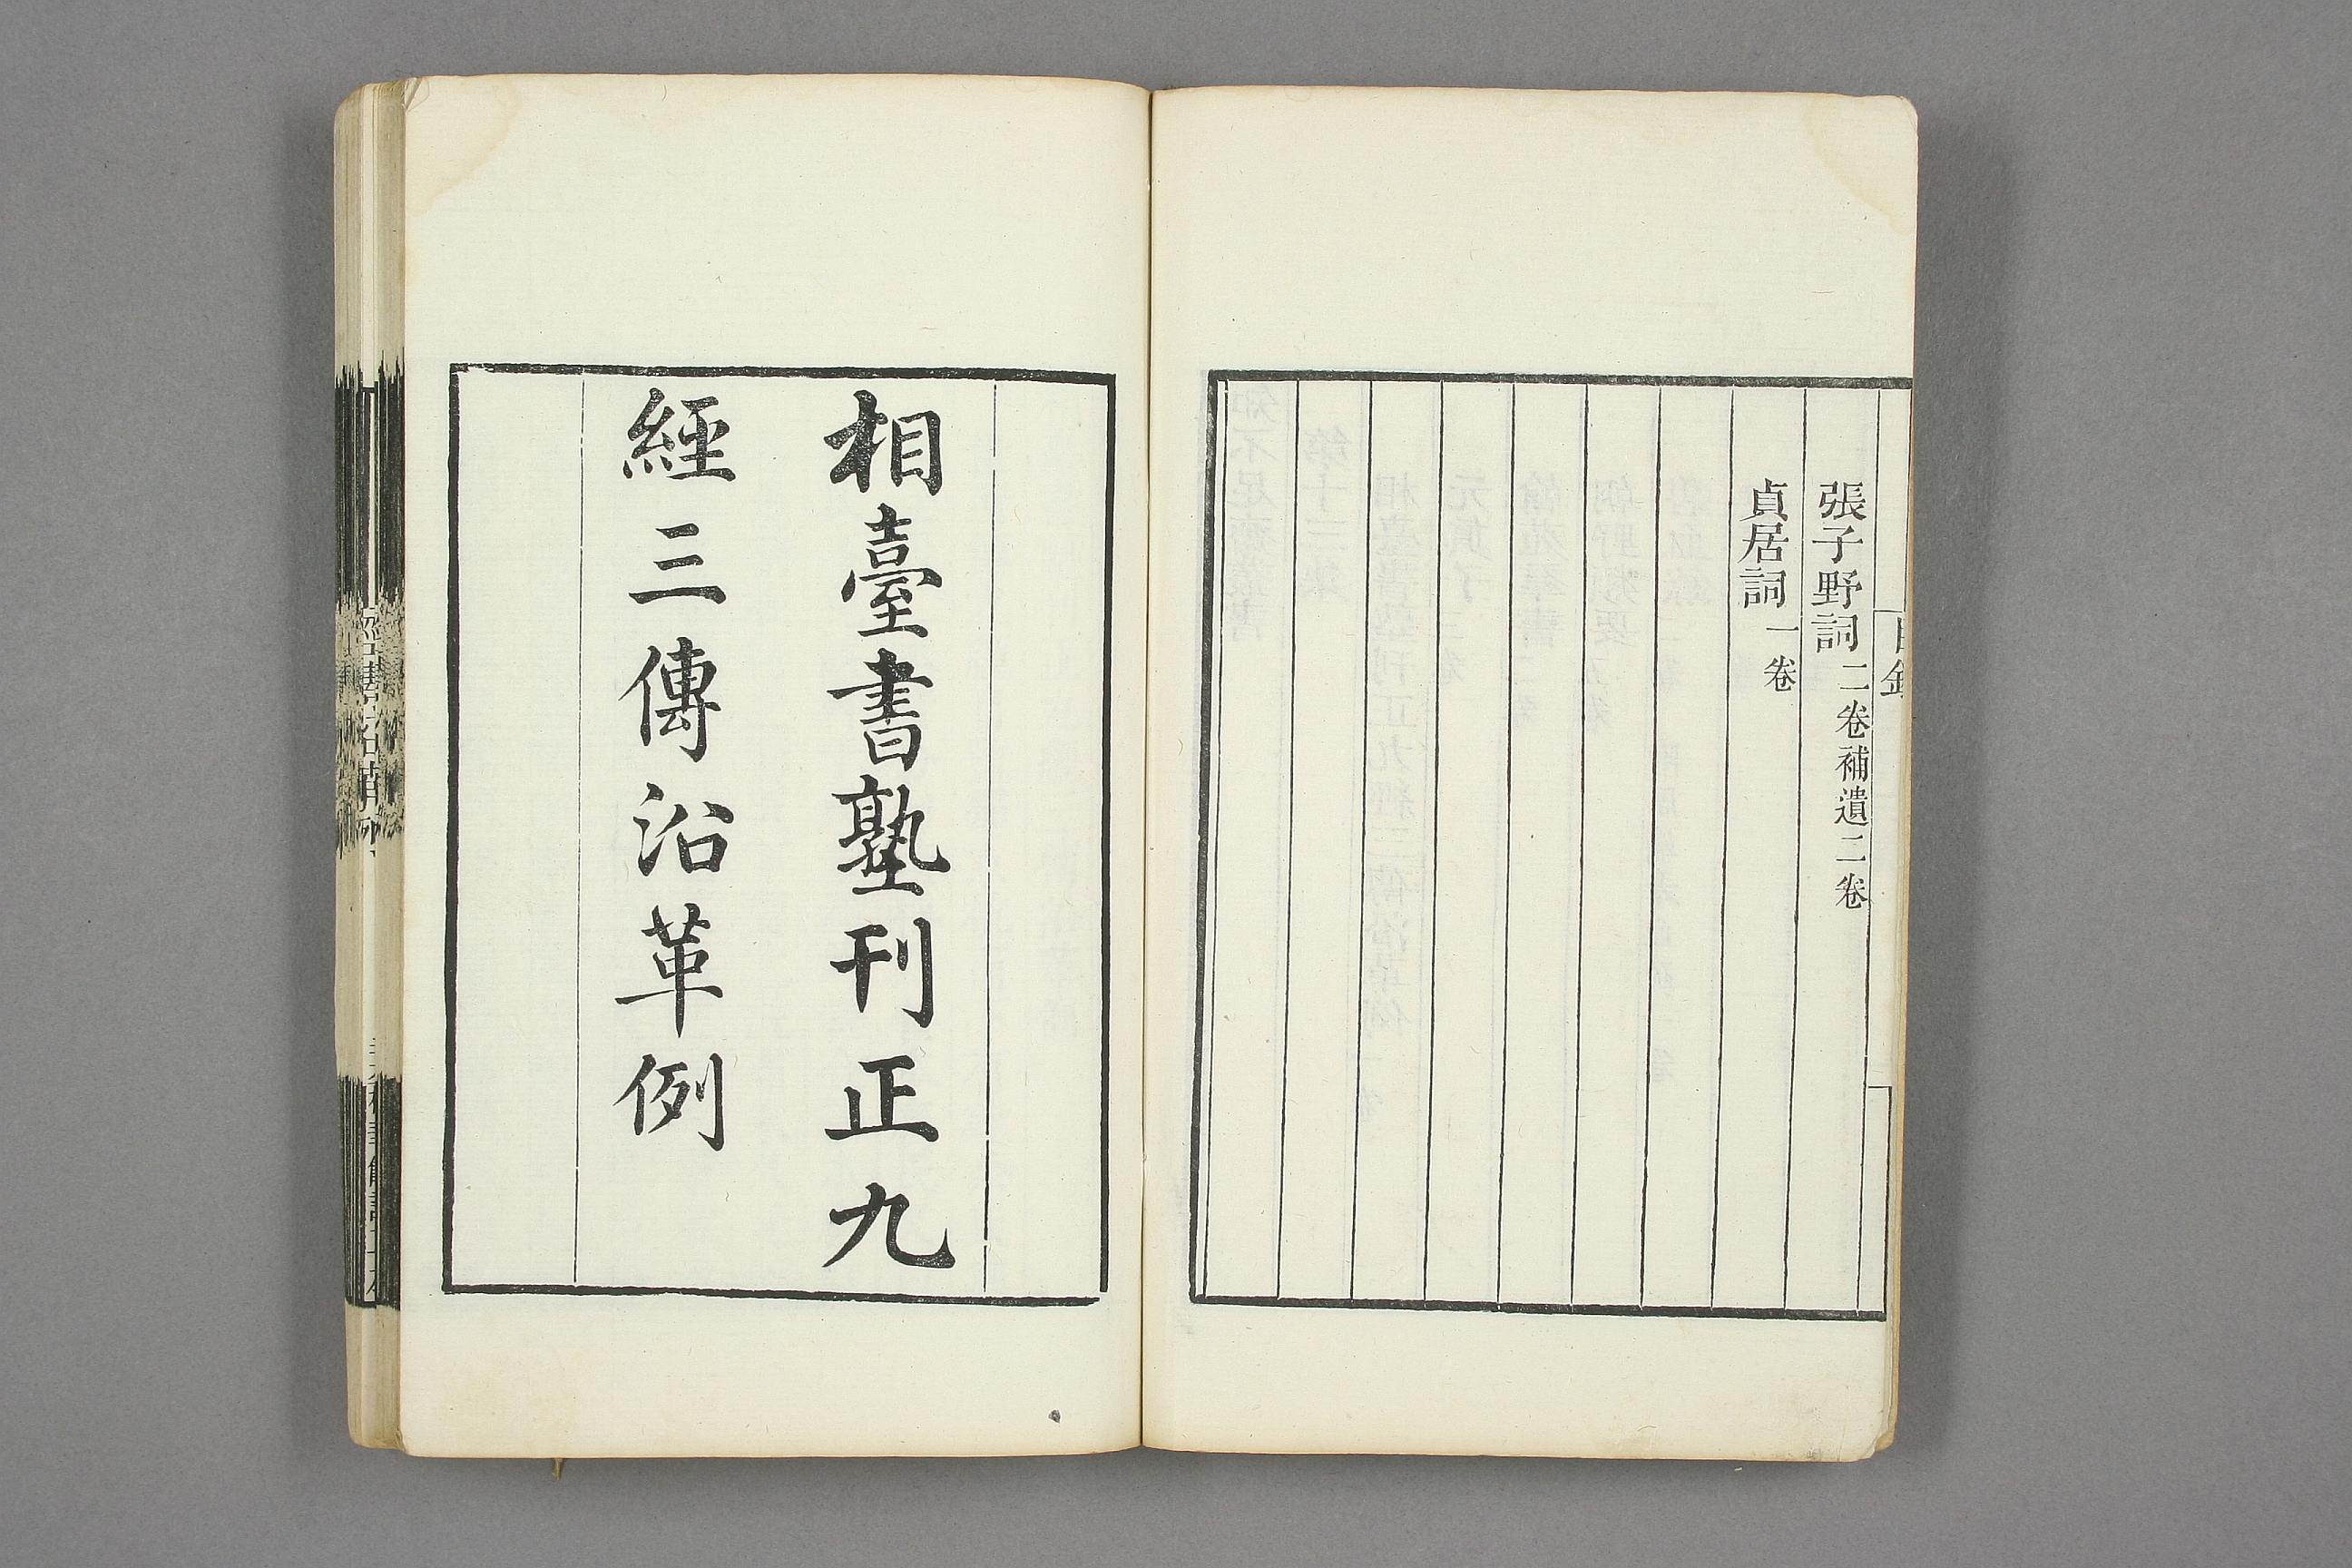 張子野詞二卷補遺二卷
貞居詞一卷
目錄
相臺書塾刊正九
經三傳沿革例